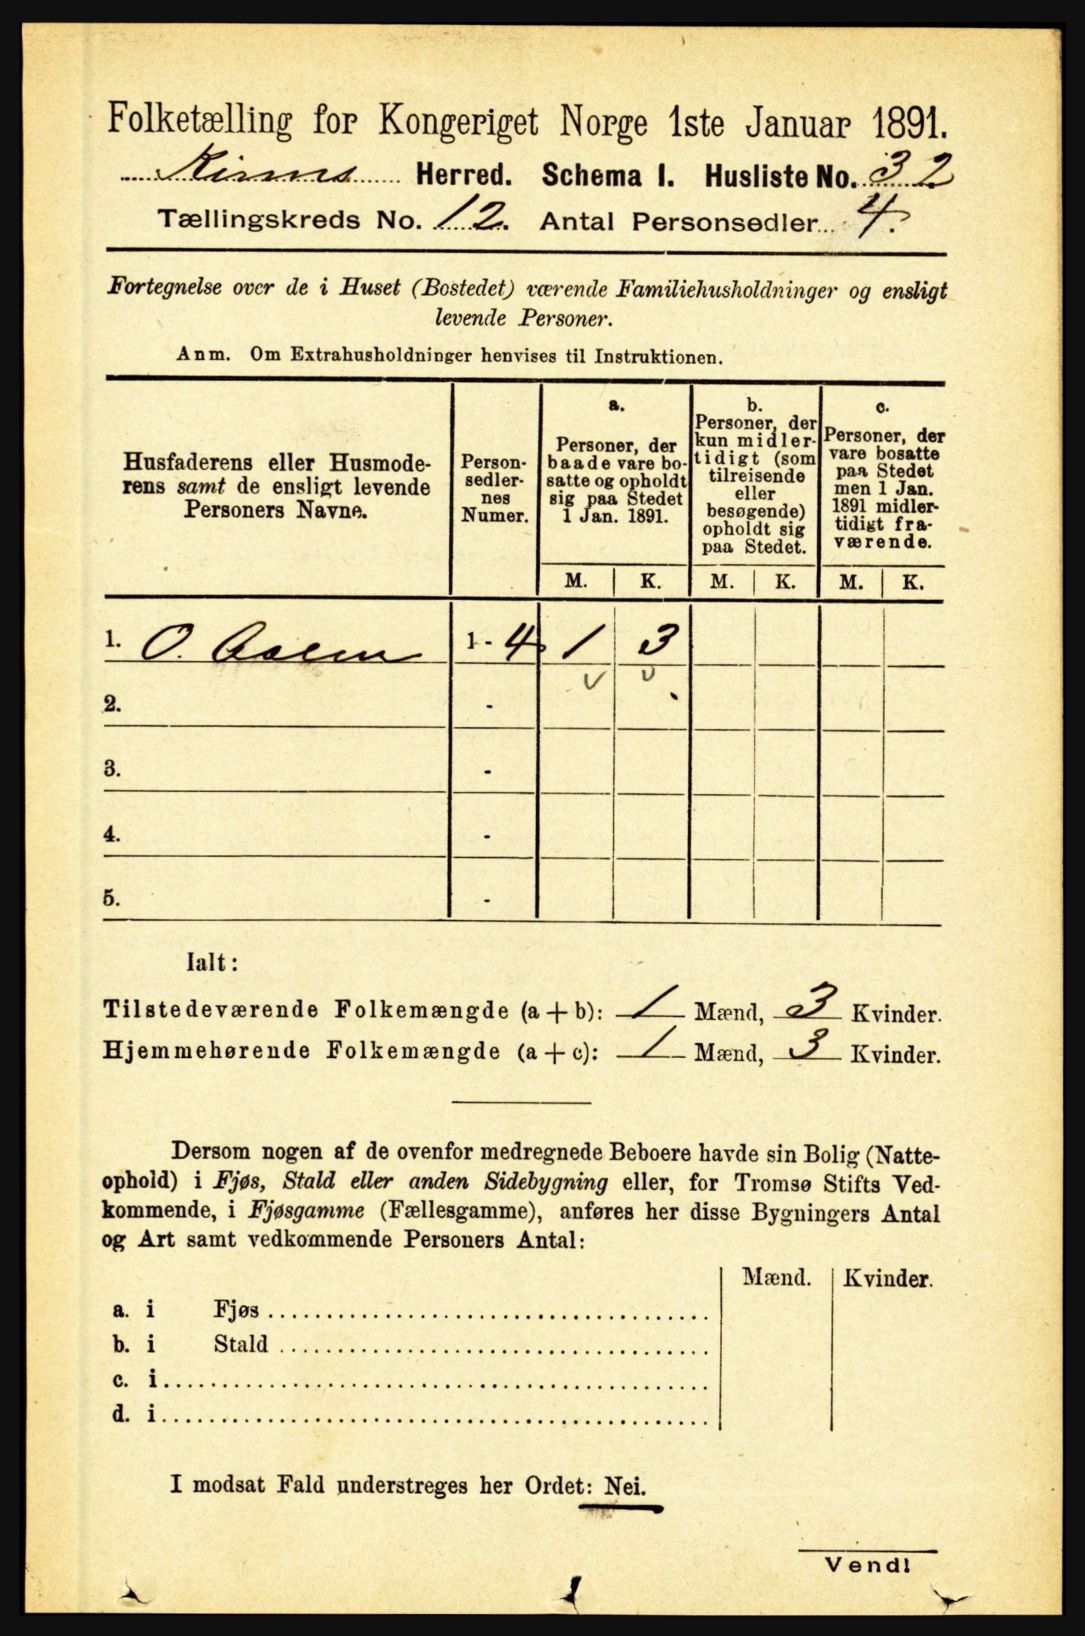 Folketælling for Kongeriget Norge 1ste Januar 1891.
Kinns Herred. Schema I. Husliste No. 32
Tællingskreds No. 12. Antal Personsedler 4.
Fortegnelse over de i Huset (Bostedet) værende Familiehusholdninger og ensligt
levende Personer.
Anm. Om Extrahusholdninger henvises til Instruktionen.
Husfaderens eller Husmode-
rens samt de ensligt levende
Personers Navne.
Person-
sedler-
nes
Numer.
a.
Personer, der
baade vare bo-
satte og opholdt
sig paa Stedet
1 Jan. 1891.
b.
Personer, der
kun midler-
tidigt (som
tilreisende
eller
besøgende)
opholdt sig
paa Stedet.
c.
Personer, der
vare bosatte
paa Stedet
men 1 Jan.
1891 midler-
tidigt fra-
værende.
M. K. M. K. M. K.
1. O. 1 - 4 1 3
2. -
3. -
4. -
5. -
Ialt:
Tilstedeværende Folkemængde (a + b): 1 Mænd, 3 Kvinder.
Hjemmehørende Folkemængde (a + c): 1 Mænd, 3 Kvinder.
Dersom nogen af de ovenfor medregnede Beboere havde sin Bolig (Natte-
ophold) i Fjøs, Stald eller anden Sidebygning eller, for Tromsø Stifts Ved-
kommende, i Fjøsgamme (Fællesgamme), anføres her disse Bygningers Antal
og Art samt vedkommende Personers Antal:
Mænd. Kvinder.
a. i Fjøs
b. i Stald
c. i
d. i
I modsat Fald understreges her Ordet: Nei.
Vend!